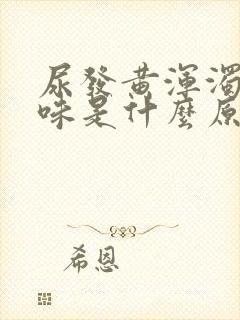 尿發黃渾濁
味是什麼原
希恩